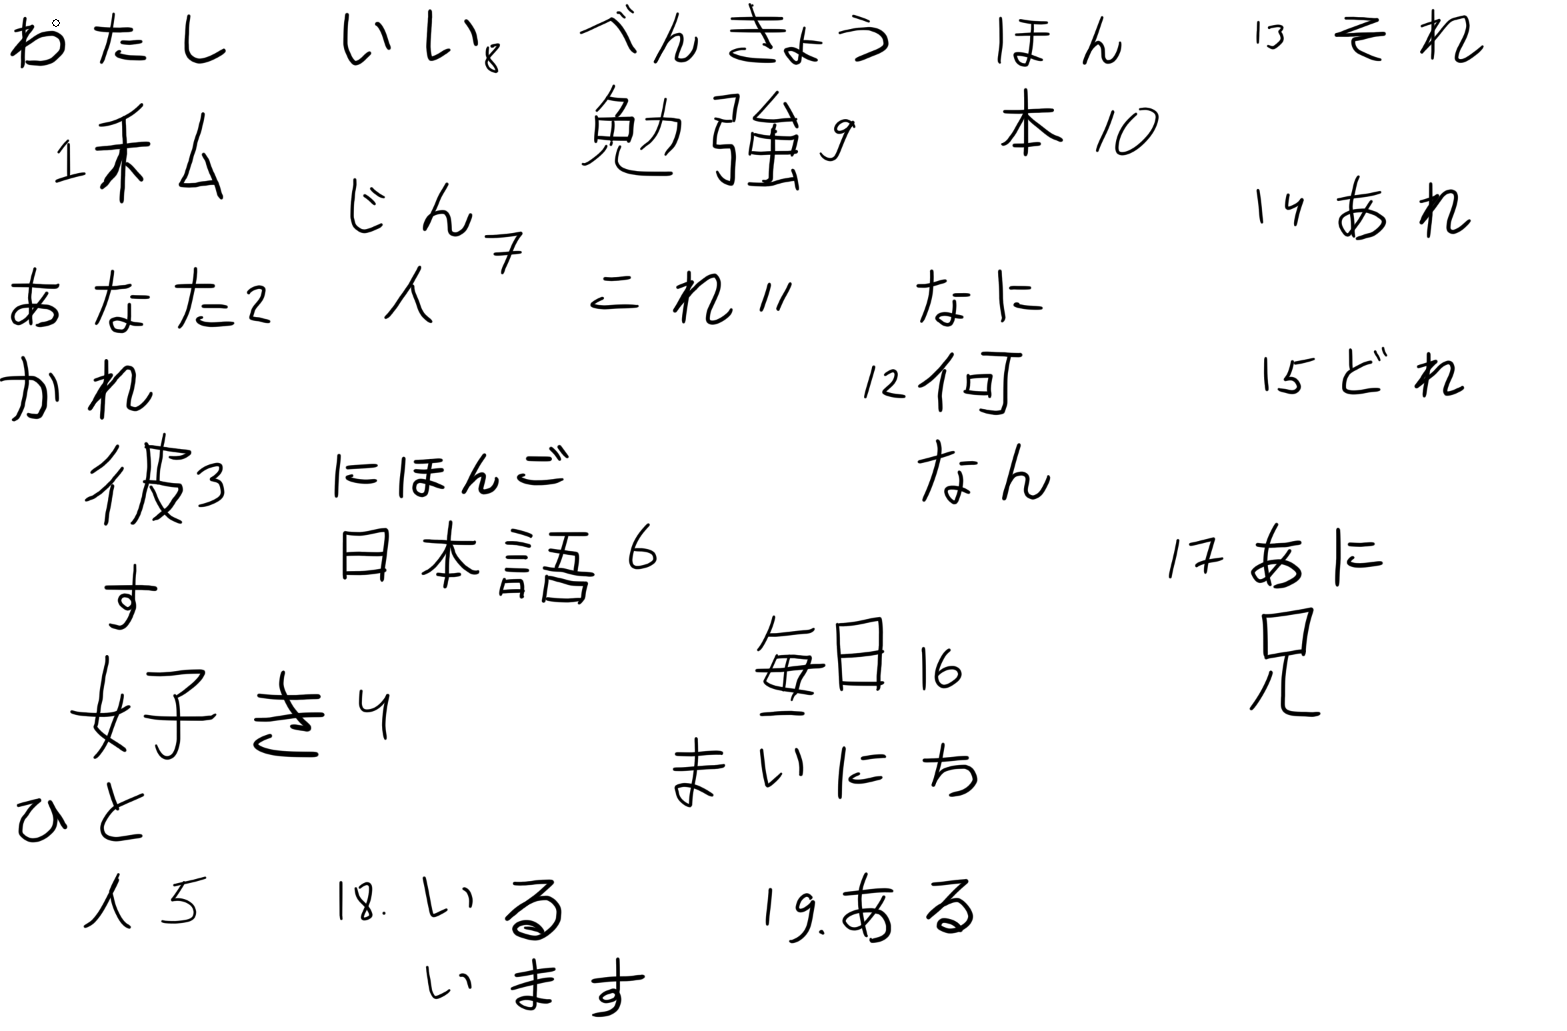 わたし
1 私
あなた 2
かれ
彼 3
す
好き 4
ひと
人 5
いい 8
じん 7
人
にほんご
日本語 6
18. いる
います
べんきょう
勉強 9
これ 11
ほん
本 10
なに
12 何
なん
毎日 16
まいにち
19. ある
13 それ
14 あれ
15 どれ
17 あに
兄